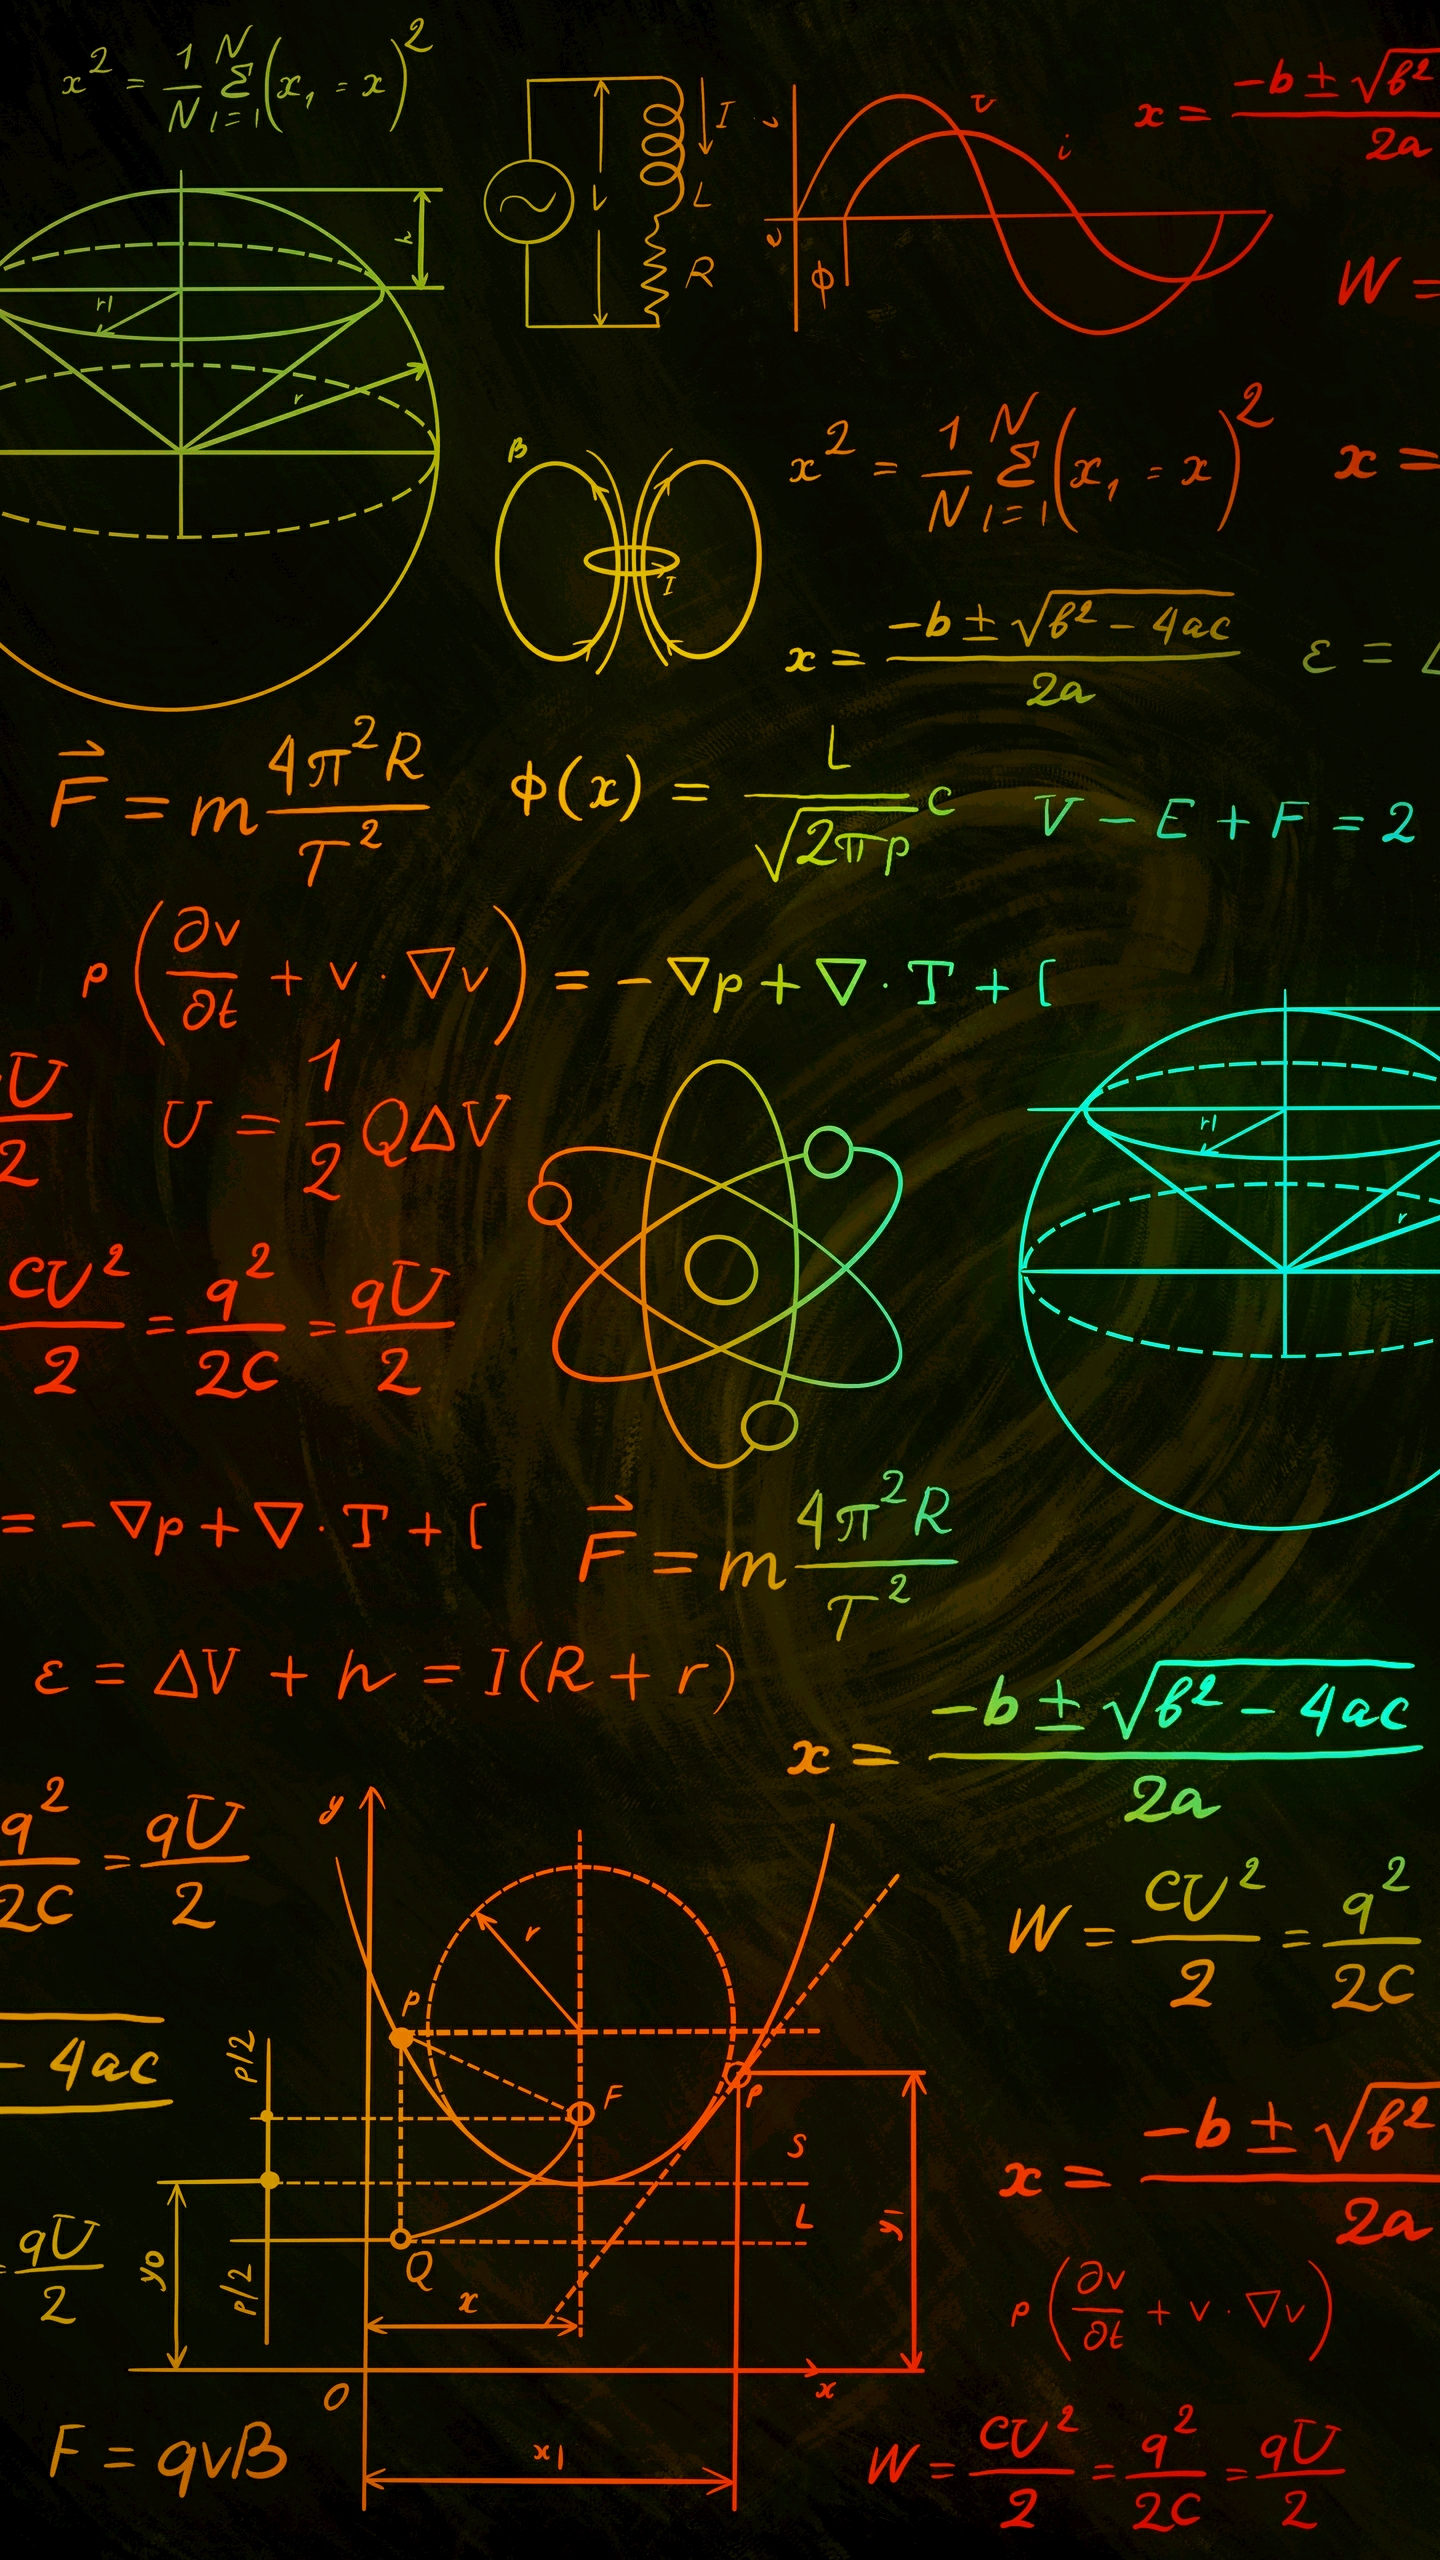 x² = 1/N N Σ i=1 (x₁ = x)²
V I L R
v i
e ϕ
x = -b ± √b² / 2a
h
r1
r
W =
B
I
x² = 1/N N Σ i=1 (x₁ = x)²
x =
x = -b ± √b² - 4ac / 2a
ε =
F⃗ = m 4π²R / T²
ϕ(x) = L / √2πp c
V - E + F = 2
p (∂v/∂t + v · ∇v) = -∇p + ∇ · T + [
U / 2
U = 1/2 QΔV
r1
r
CU²/2 = q²/2C = qU/2
= -∇p + ∇ · T + [
F⃗ = m 4π²R / T²
ε = ΔV + h = I(R + r)
x = -b ± √b² - 4ac / 2a
q²/2C = qU/2
y
r
W = CU²/2 = q²/2C
P
- 4ac
p/2
F
P
S
L
x = -b ± √b² / 2a
y1
qU/2
y0
p/2
Q
x
p (∂v/∂t + v · ∇v)
O
x
F = qvB
x1
W = CU²/2 = q²/2C = qU/2